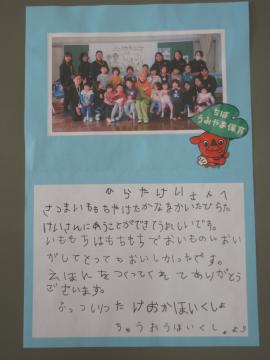 ちば
うみやま保育
ひらたけいさんへ
さつまいももちやけたかなをかいたひらた
けいさんにあうことができてうれしいです。
いももちはもちもちでおいものにおい
がしてとってもおいしかったです。
えほんをつくってくれてありがとう
ございます。
ふっつしりつ
ちゅうおうほいくしょより